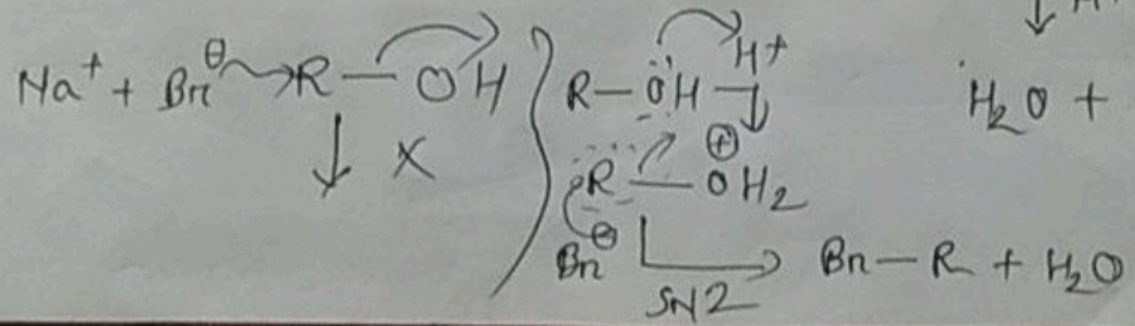 Na⁺ + Br⊖ R — OH
↓ X
R — ÖH H+
R — ⊕OH2
Br⊖ SN2 → Br — R + H2O
H2O +